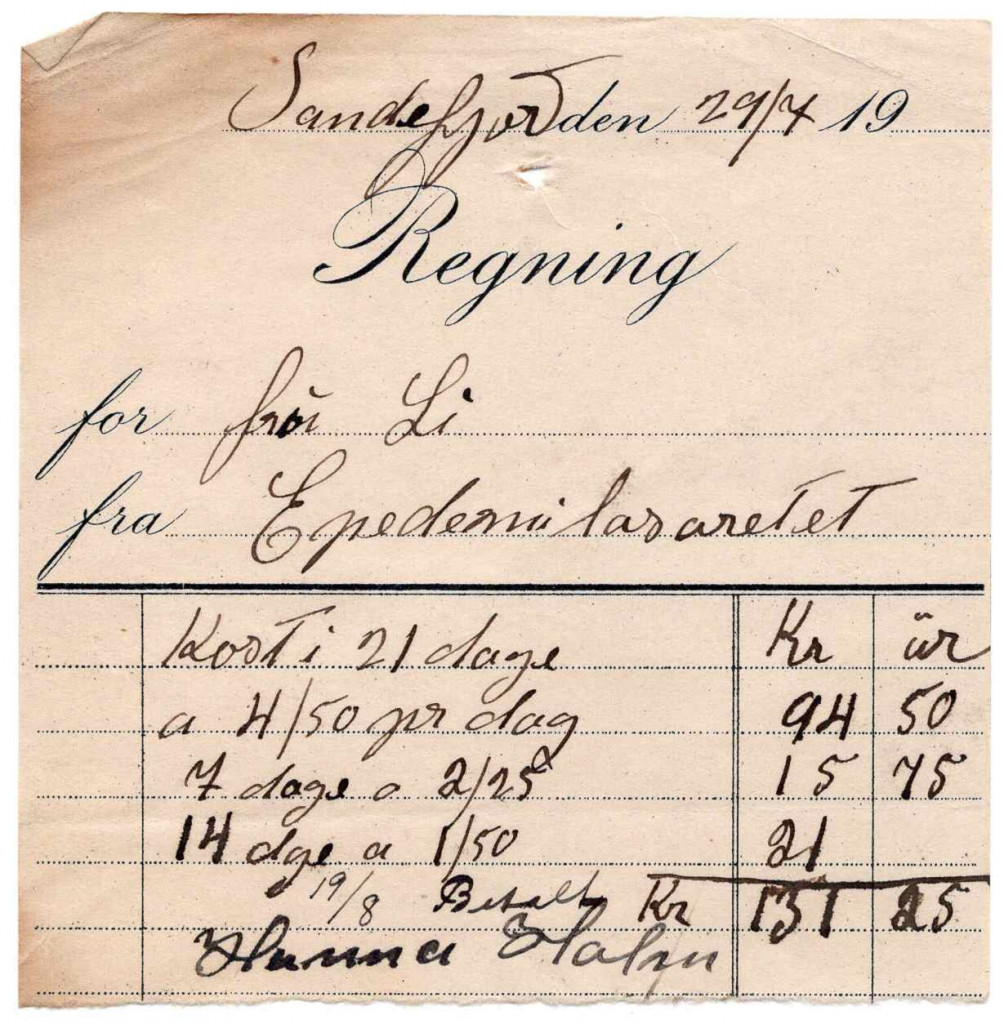 Sandefjord den 29/7 19
Regning
for frøi Li
fra Epedemilasaretet
Kost i 21 dage Kr ür
a 4/50 pr dag 94 50
7 dage a 2/25 15 75
14 dge a 1/50 21
19/8 Betalt Kr 131 25
Hanna Holm